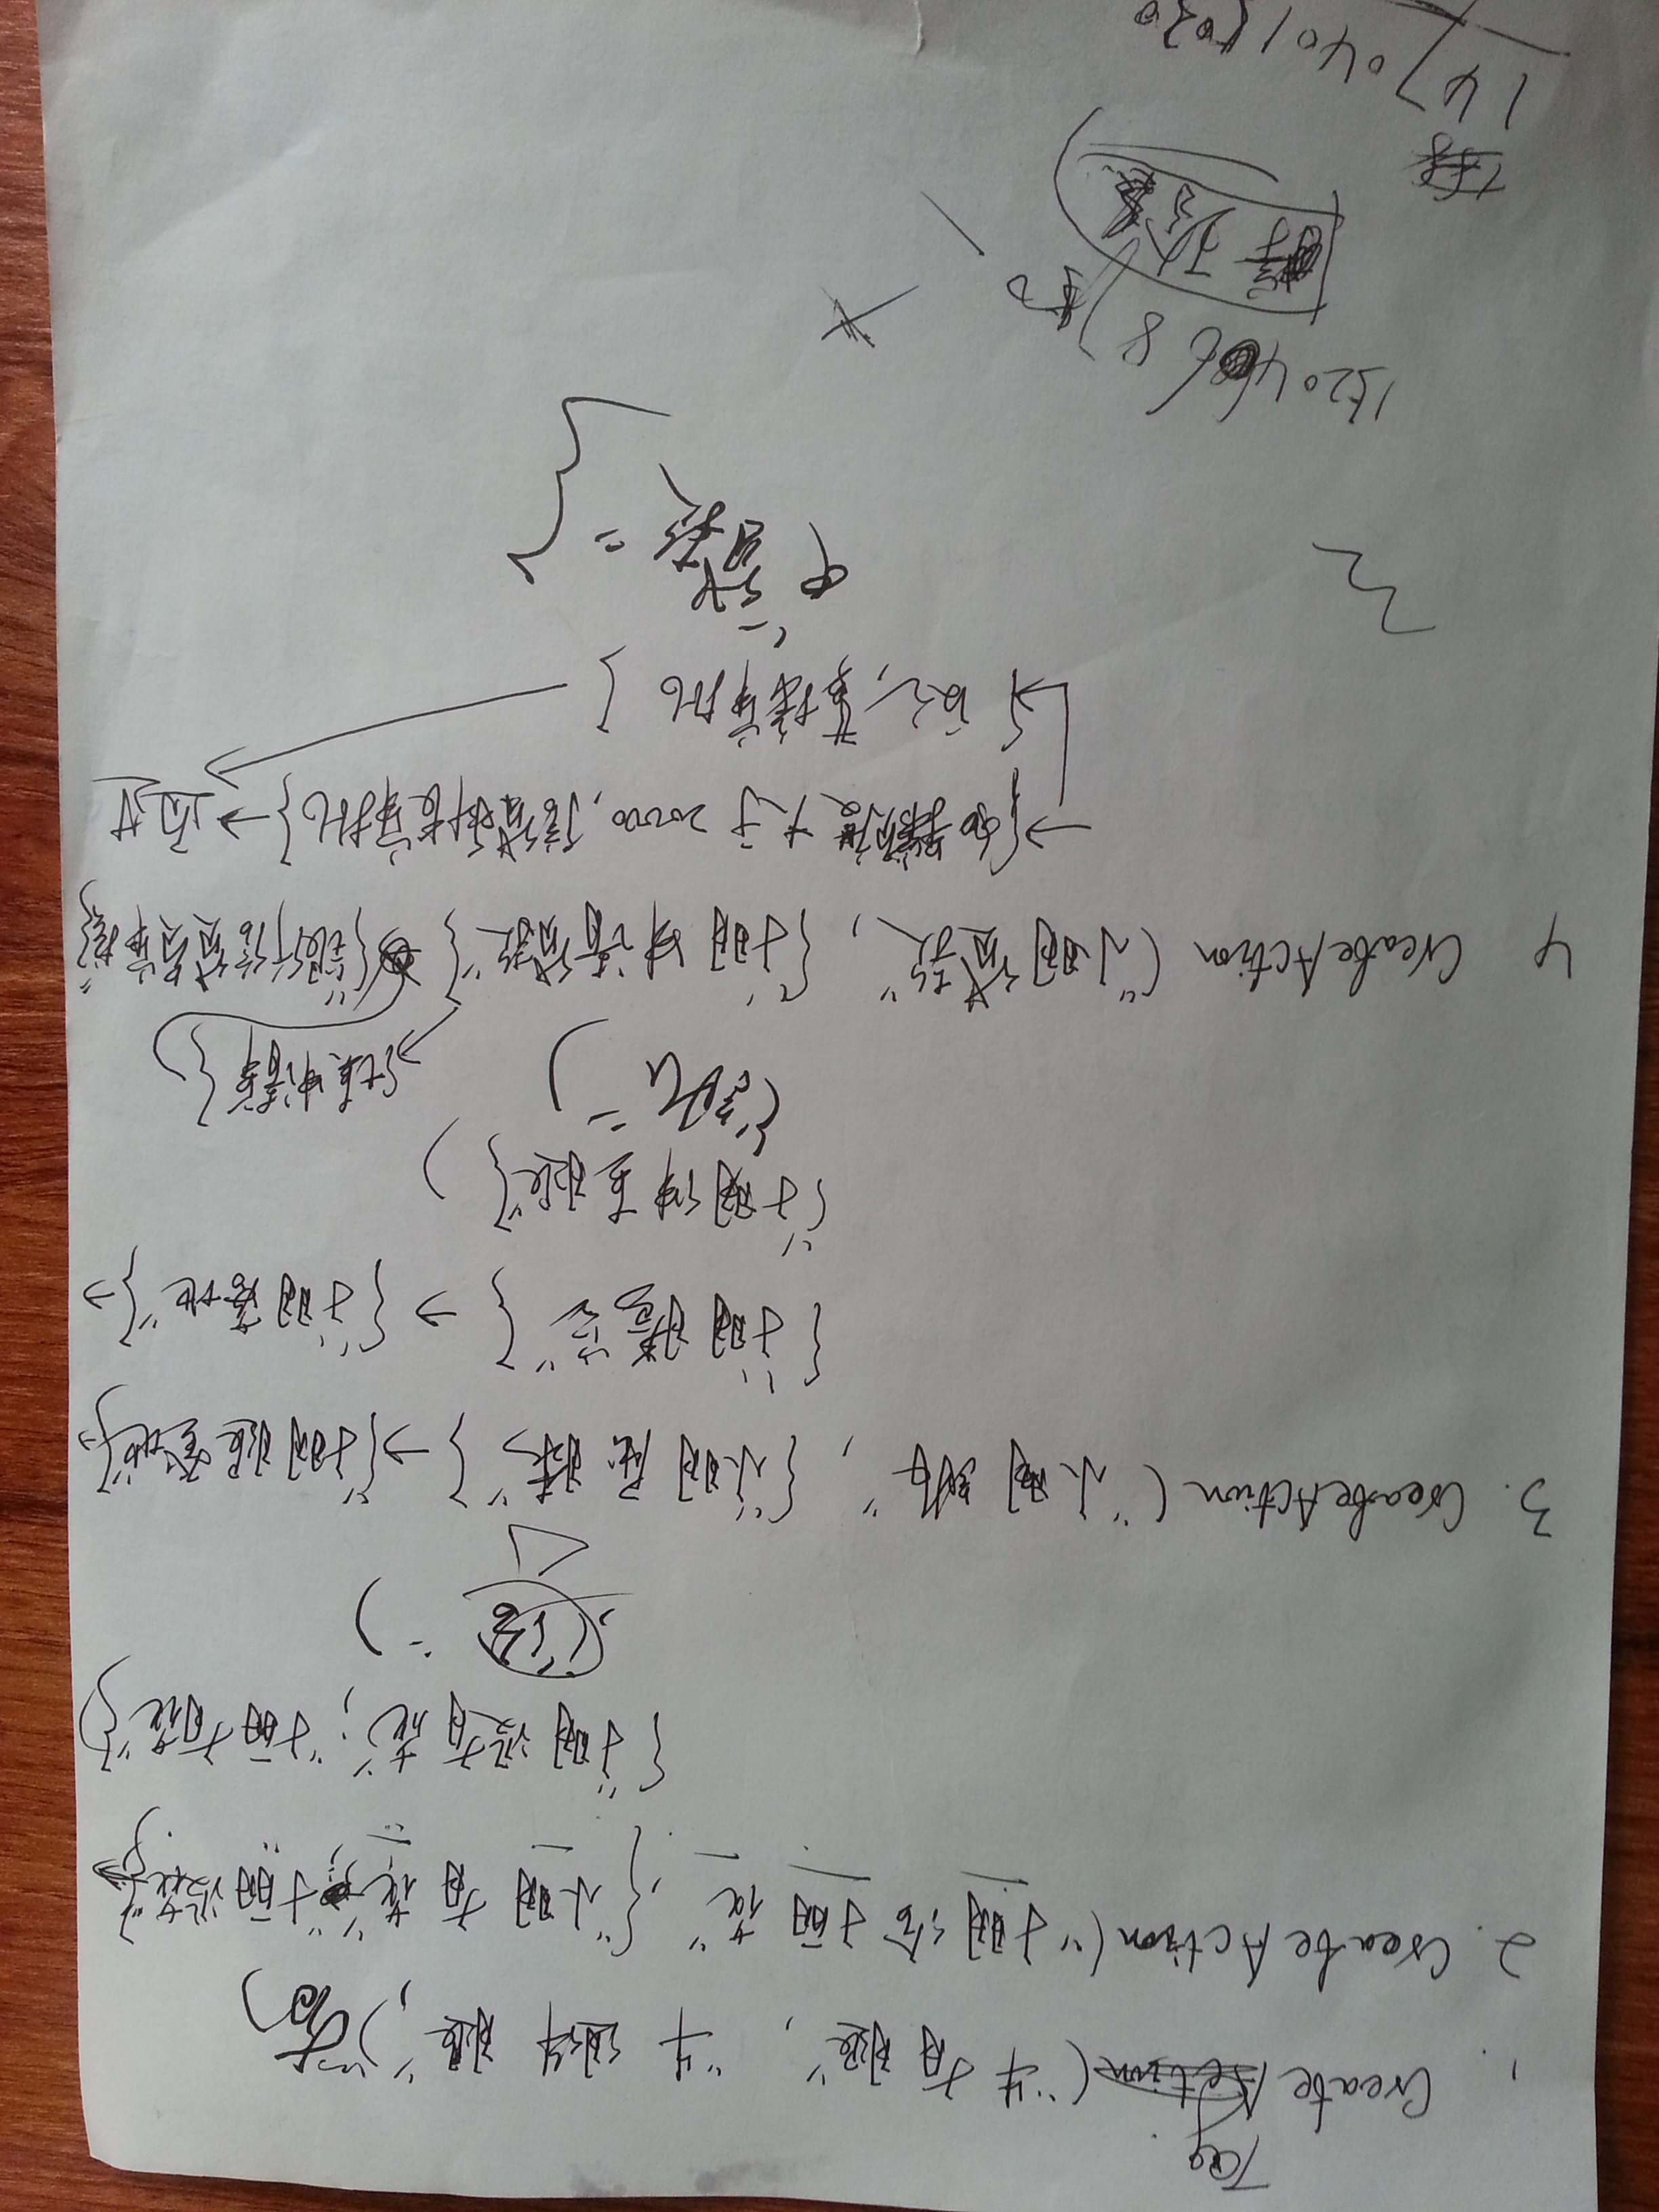 Tag
1. Create ("牛有腿", "牛 组件 腿", "有")
2. CreateAction("小明给小丽花", {"小明有花"; "小丽没花"}→
{"小明没有花"; "小丽有花"}
, "给")
3. CreateAction("小明跳", {"小明屈膝"}→{"小明腿登地"}→
{"小明腾空"}→{"小明落地"}→
{"小明伸直腿"})
→{填申请单}
4 CreateAction("小明贷款", {"小明申请贷款"} {"银行信贷员审核"}
→{如果额度大于20000,信贷科长审批}→通过
{反之,直接审批}
"贷款"
珍
14704015030